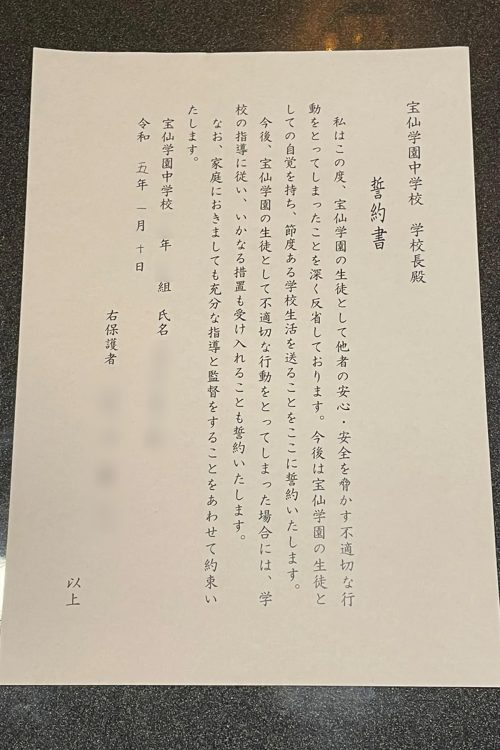 宝仙学園中学校　学校長殿
誓約書
私はこの度、宝仙学園の生徒として他者の安心・安全を脅かす不適切な行
動をとってしまったことを深く反省しております。今後は宝仙学園の生徒と
しての自覚を持ち、節度ある学校生活を送ることをここに誓約いたします。
今後、宝仙学園の生徒として不適切な行動をとってしまった場合には、学
校の指導に従い、いかなる措置も受け入れることも誓約いたします。
なお、家庭におきましても充分な指導と監督をすることをあわせて約束い
たします。
令和　五年　一月　十日
宝仙学園中学校　年　組　氏名
右保護者
以上